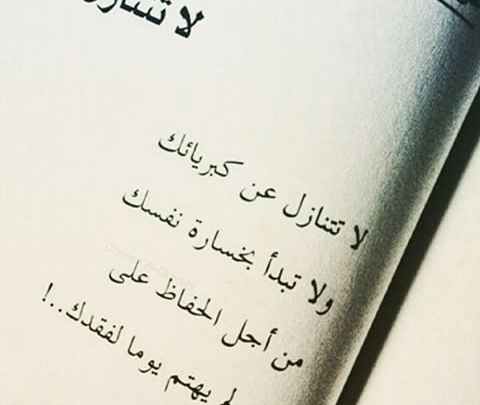 لا
لا تتنازل عن كبريائك
ولا تبدأ بخسارة نفسك
من أجل الحفاظ على
لم يهتم يوما لفقدك..!